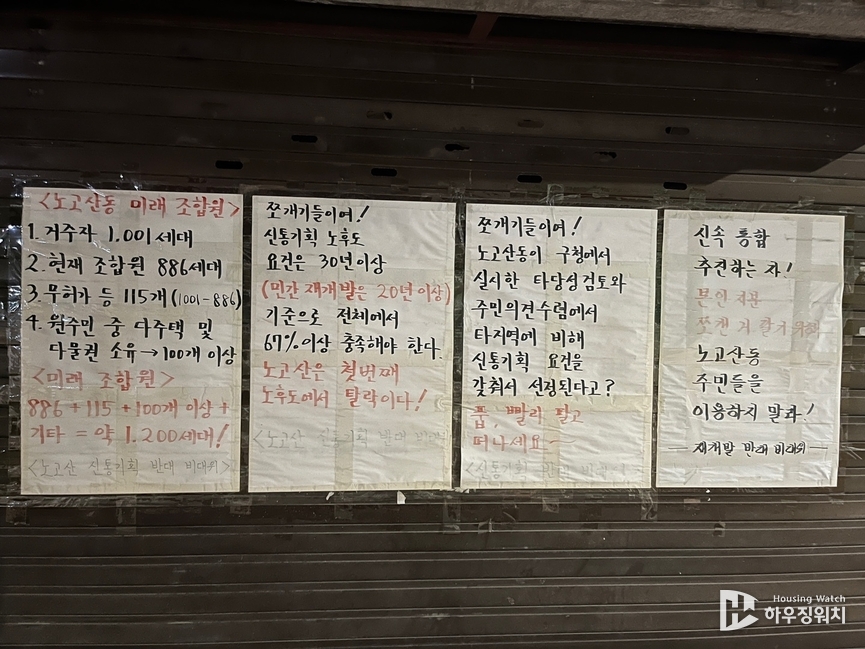 <노고산동 미래 조합원>
1. 거주자 1.001세대
2. 현재 조합원 886세대
3. 무허가 등 115개 (1001-886)
4. 원주민 중 다주택 및
다물권 소유→100개 이상
<미래 조합원>
886+115+100개 이상+
기타 = 약 1.200세대!
<노고산 신통기획 반대 비대위>
쪼개기들이여!
신통기획 노후도
요건은 30년이상
(민간 재개발은 20년이상)
기준으로 전체에서
67%이상 충족해야 한다.
노고산은 첫번째
노후도에서 탈락이다!
<노고산 신통기획 반대 비대위
쪼개기들이여!
노고산동이 구청에서
실시한 타당성검토와
주민의견수렴에서
타지역에 비해
신통기획 요건을
갖춰서 선정된다고?
풉, 빨리 팔고
떠나세요~
<신통기획 반대
신속 통합
추진하는 자!
본인
쪼갠 거 팔기 위해
노고산동
주민들을
이용하지 말라!
- 재개발 반대 비대위 -
Housing Watch
하우징워치